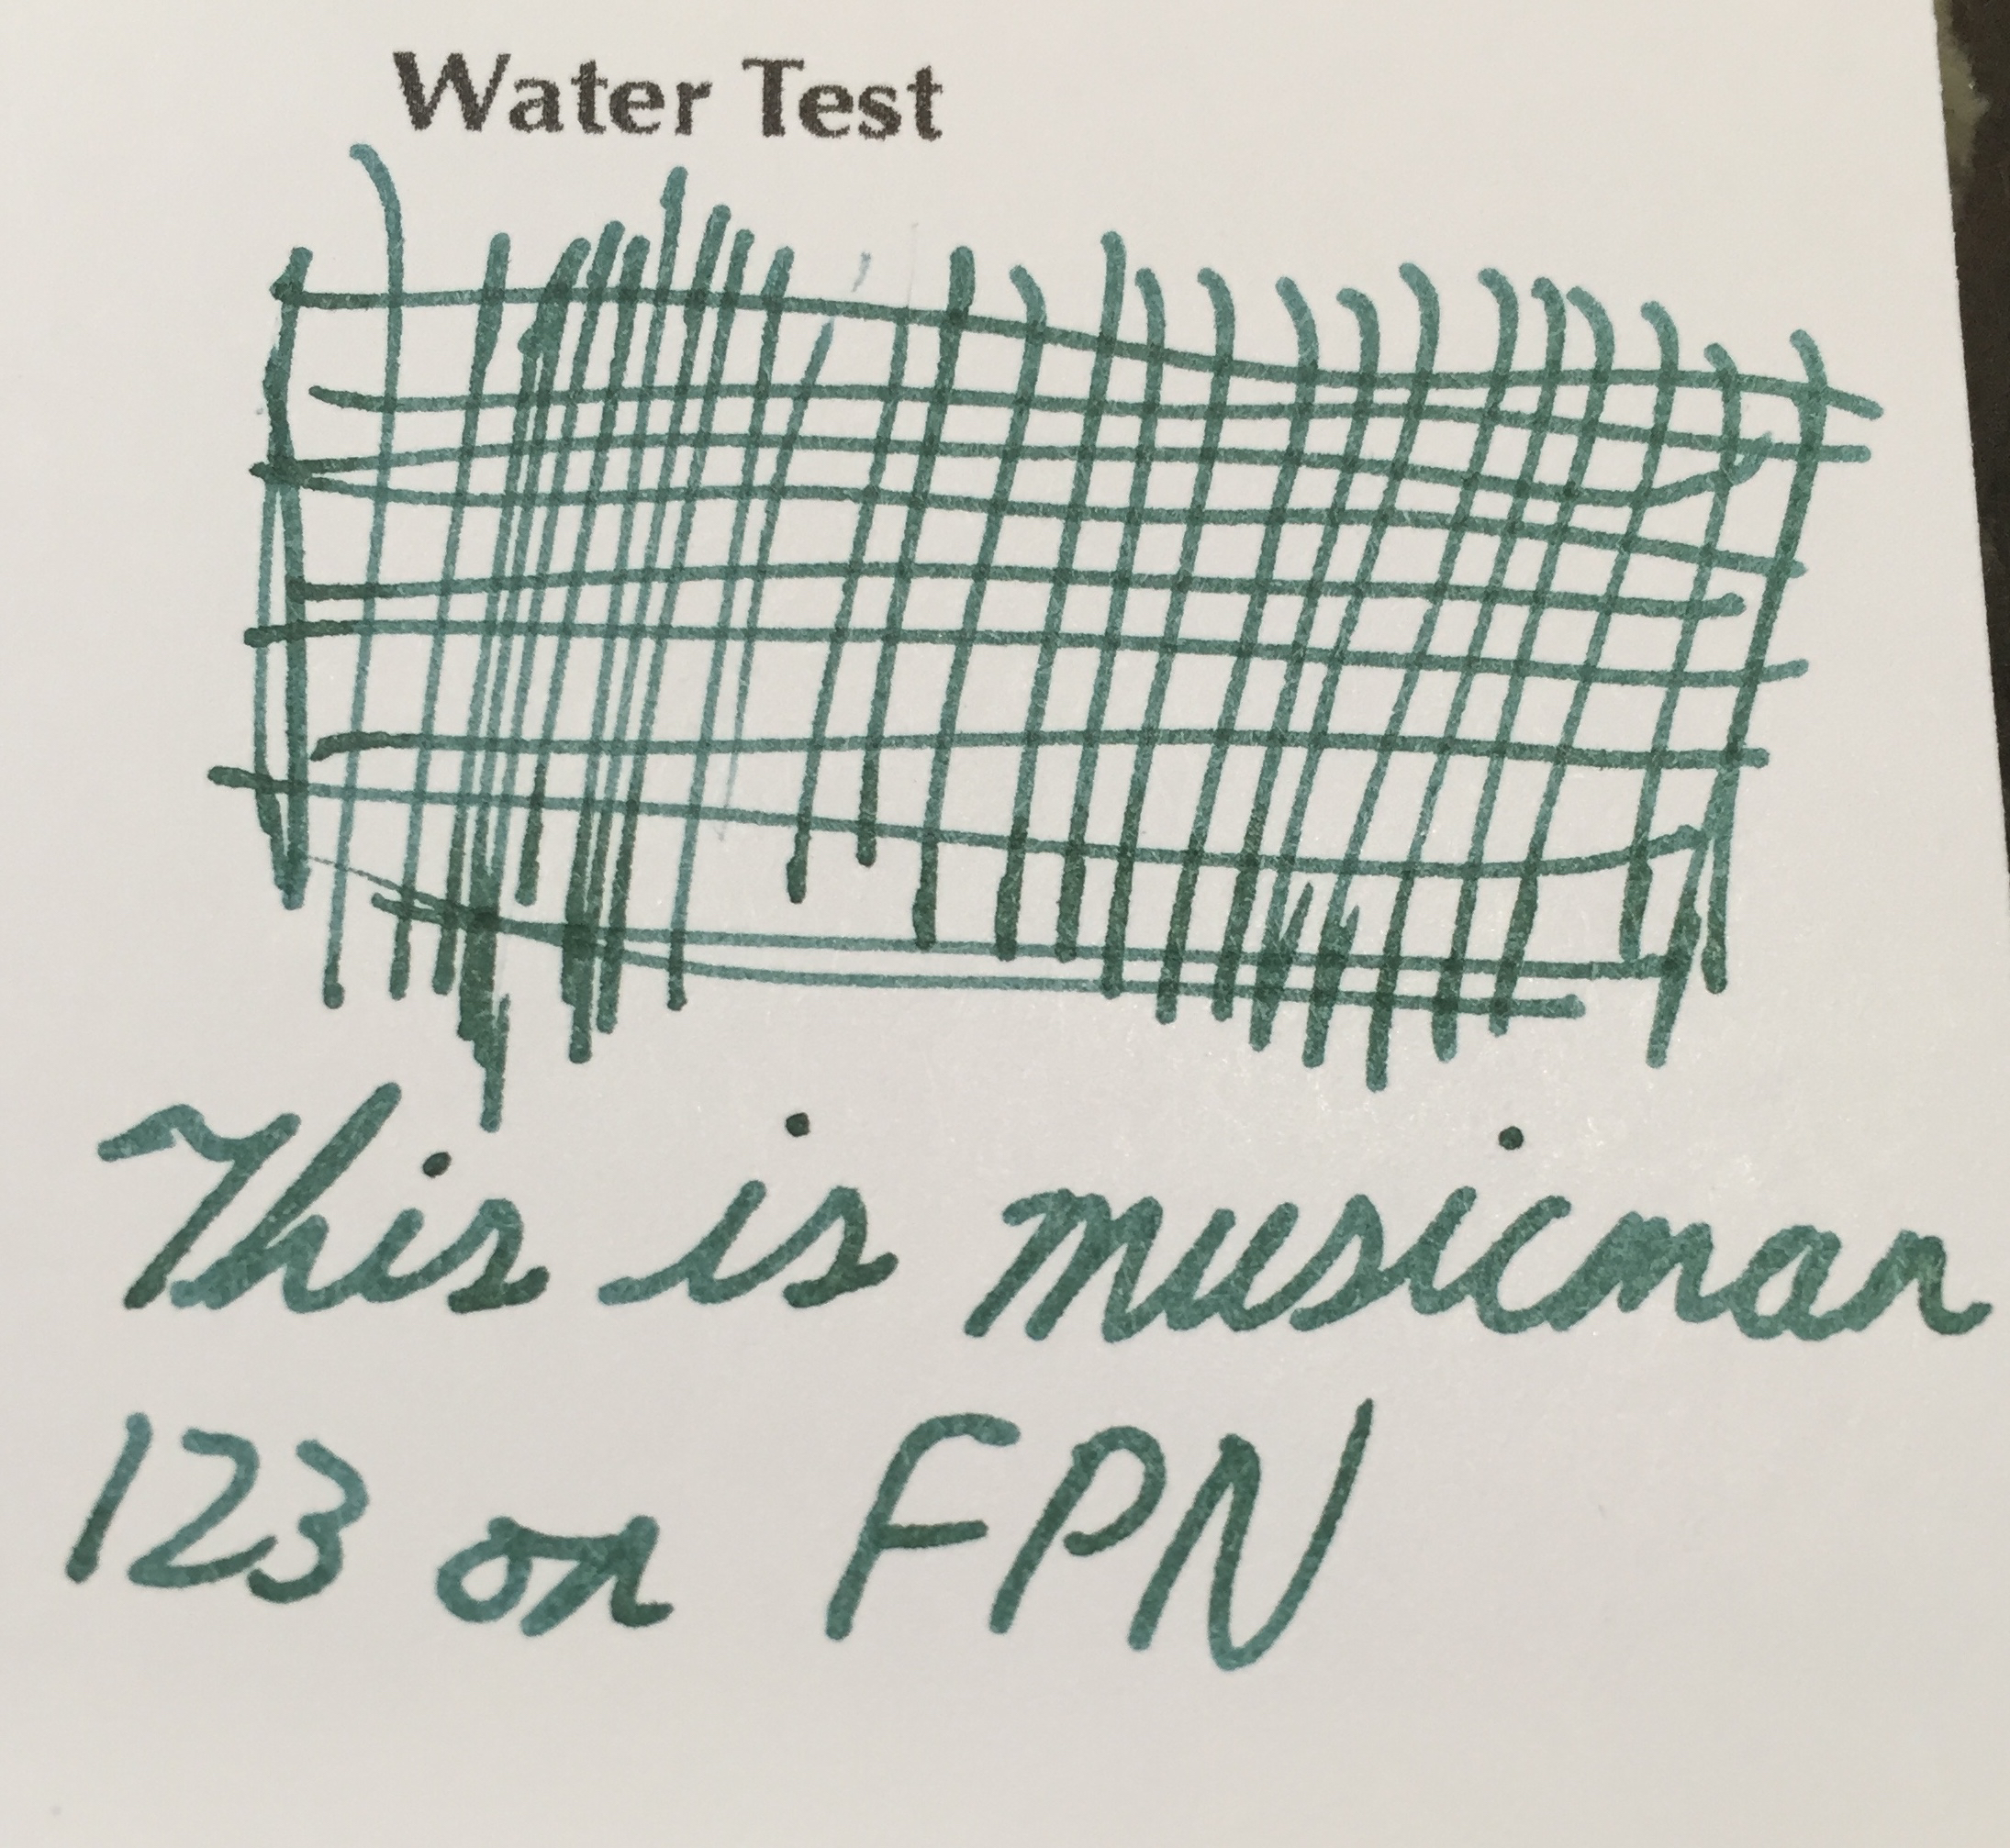 Water Test
This is musicman
123 on FPN